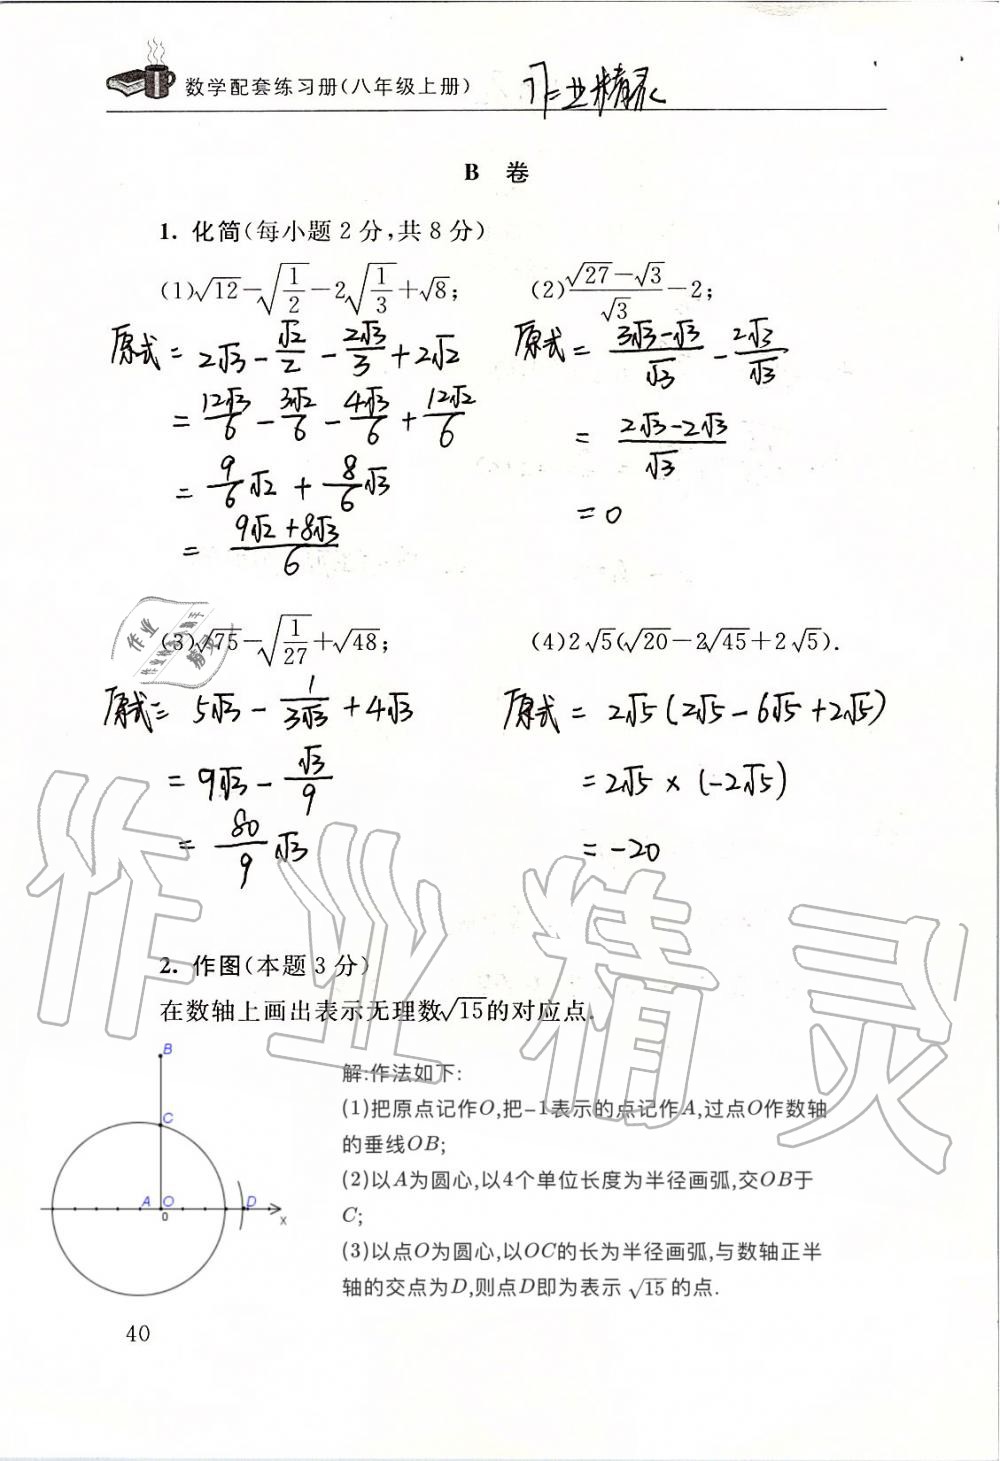 数学配套练习册(八年级上册)
作业精灵
B 卷
1. 化简(每小题2分,共8分)
(1)√12-√(1/2)-2√(1/3)+√8;
(2)(√27-√3)/√3-2;
原式= 2√3 - √2/2 - 2√3/3 + 2√2
= 12√3/6 - 3√2/6 - 4√3/6 + 12√2/6
= 9/6√2 + 8/6√3
= (9√2+8√3)/6
原式= (3√3-√3)/√3 - 2√3/√3
= (2√3-2√3)/√3
= 0
(3)√75-√(1/27)+√48;
(4)2√5(√20-2√45+2√5).
原式= 5√3 - 1/(3√3) + 4√3
= 9√3 - √3/9
= 80/9√3
原式= 2√5(2√5-6√5+2√5)
= 2√5×(-2√5)
= -20
2. 作图(本题3分)
在数轴上画出表示无理数√15的对应点.
B
C
A O D
0 x
解:作法如下:
(1)把原点记作O,把-1表示的点记作A,过点O作数轴
的垂线OB;
(2)以A为圆心,以4个单位长度为半径画弧,交OB于
C;
(3)以点O为圆心,以OC的长为半径画弧,与数轴正半
轴的交点为D,则点D即为表示 √15 的点.
40
作业精灵